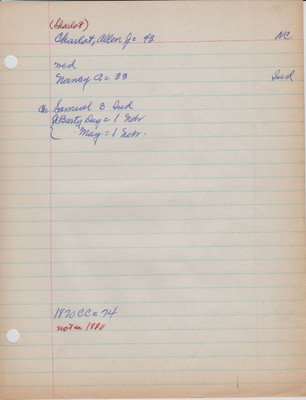 (Charlot)
Charlot, Allen J = 43 NC
med
Nancy A = 33 Ind
Ch Samuel 3 Ind
Day = 1 Nebr
May = 1 Nebr.
1870 CC = 74
not in 1880